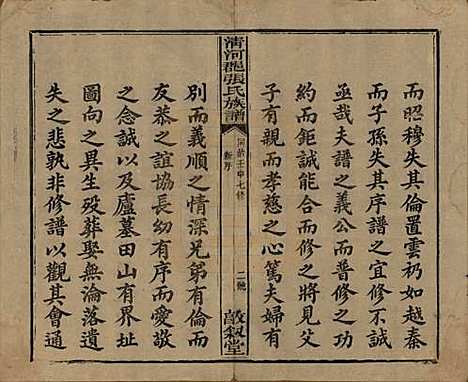 而昭穆失其倫置雲礽如越秦
而子孫失其序譜之宜修不誠
亟哉夫譜之義公而普修之簡
約而鉅誠能合而修之將見父
子有親而孝慈之心篤夫婦有
清河郡張氏族譜
民國壬申七修
新序
二號
敦敘堂
別而義順之情深兄弟有倫而
友恭之誼協長幼有序而愛敬
之念誠以及廬墓田山有界限
圖向之異生殁葬娶無淪落遺
失之悲孰非修譜以觀其會通